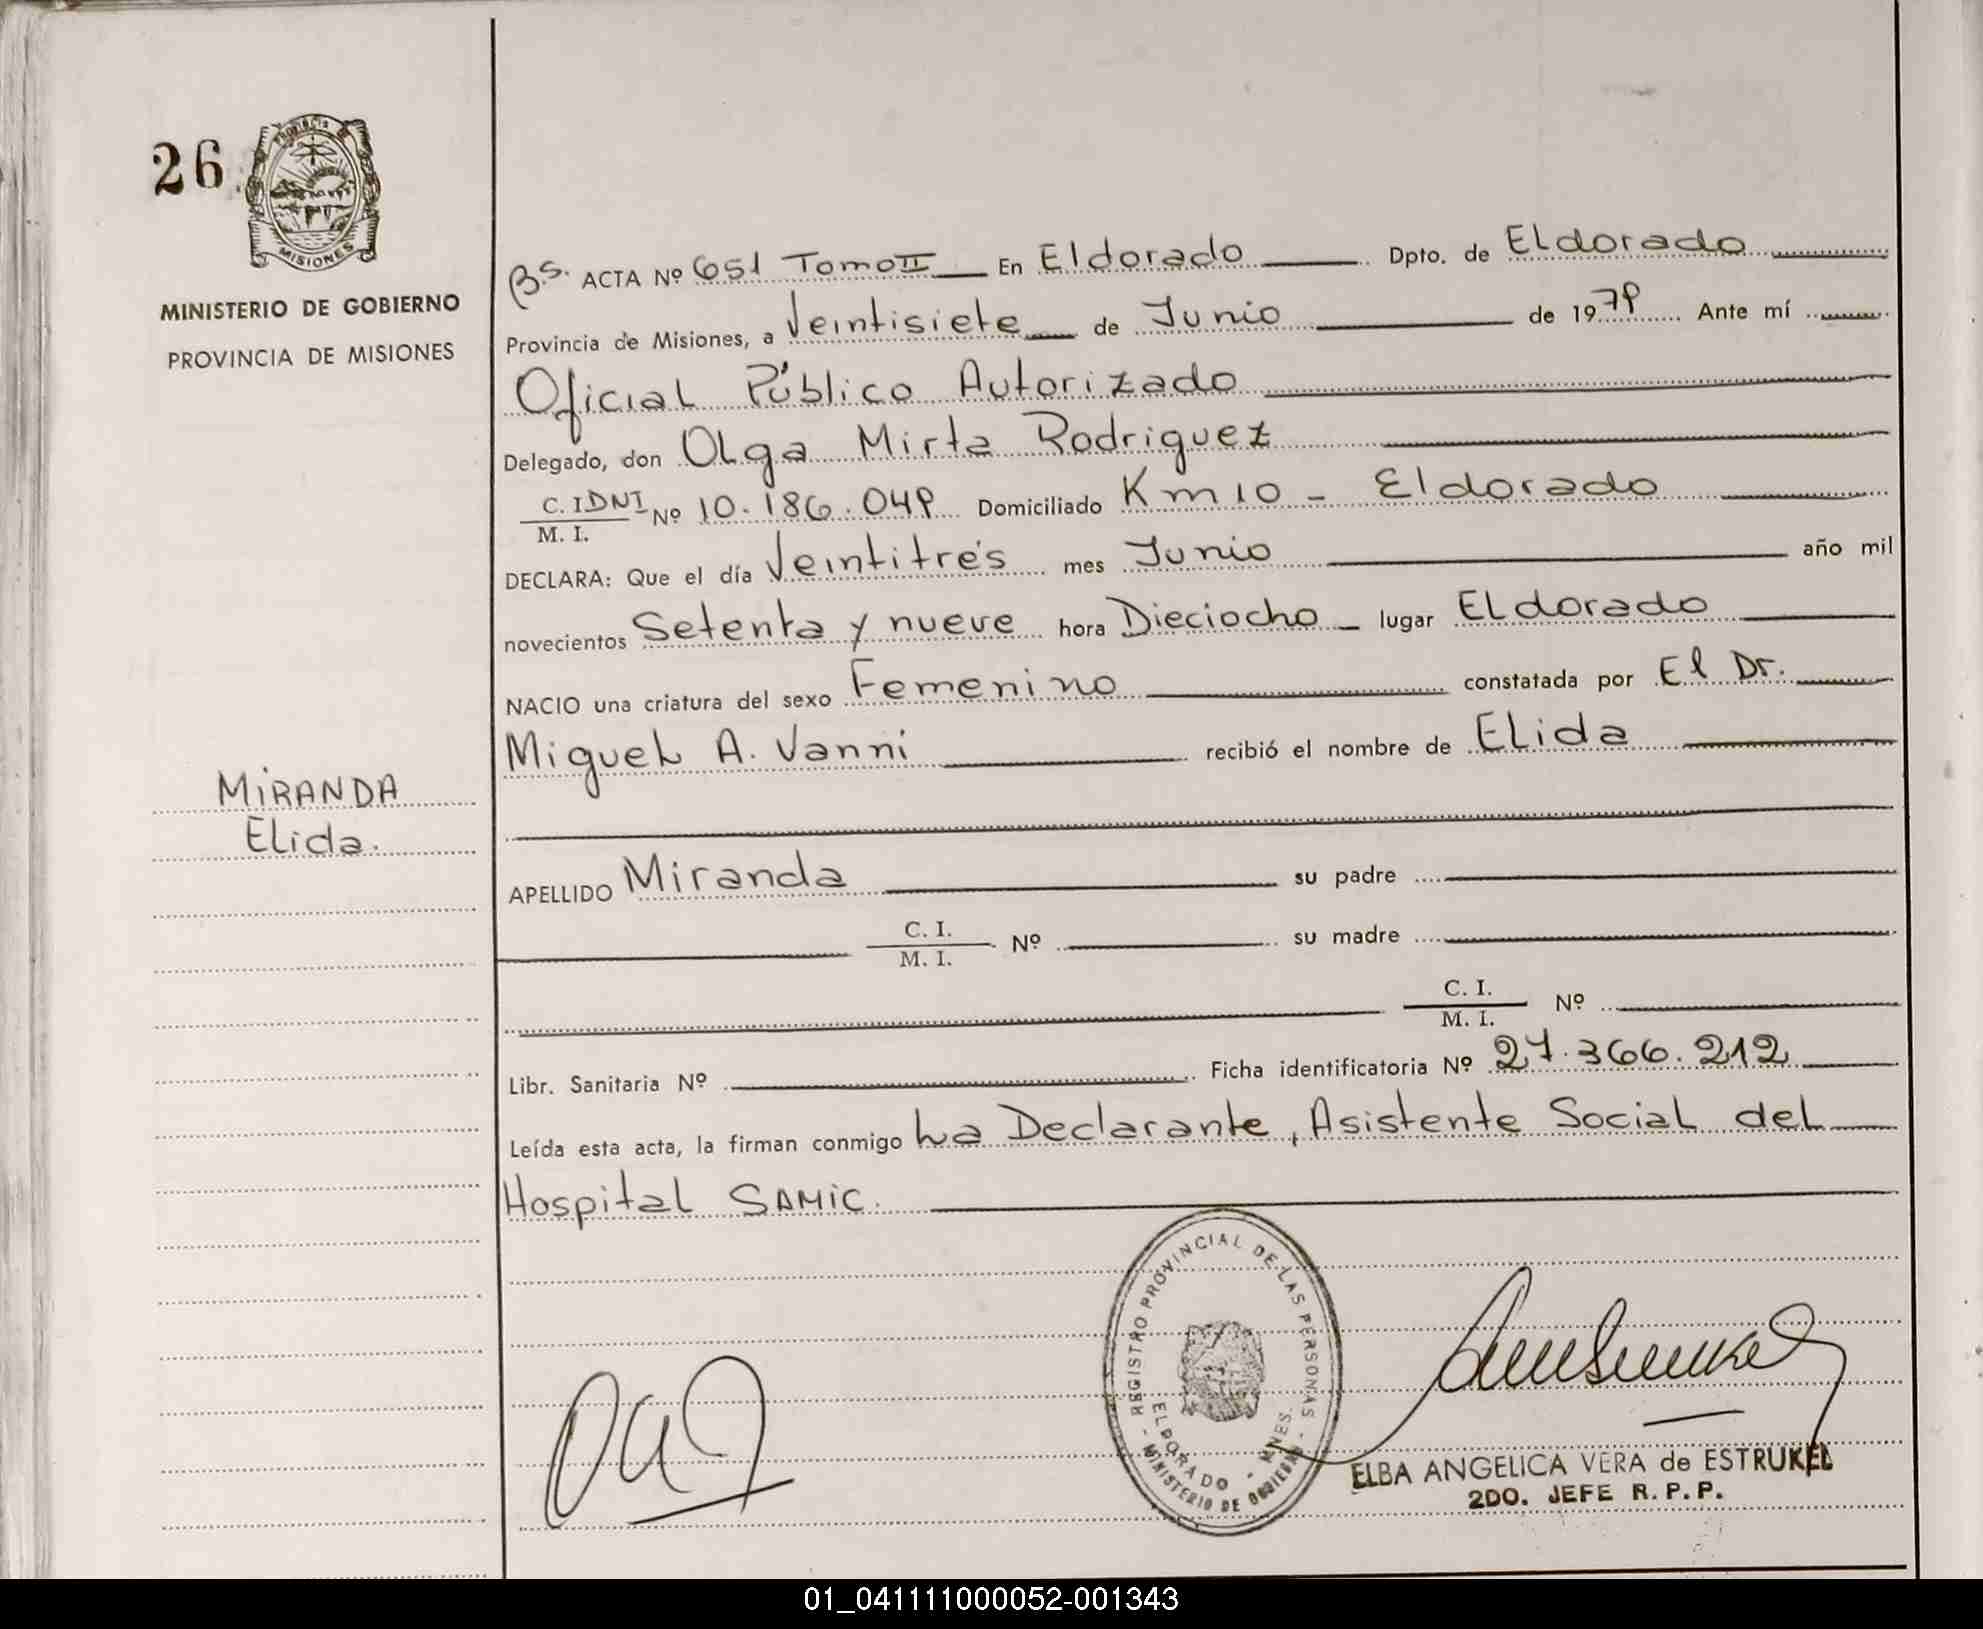 26
PROVINCIA DE
MISIONES
MINISTERIO DE GOBIERNO
PROVINCIA DE MISIONES
MIRANDA
Elida.
Bs. ACTA Nº 651 Tomo II En Eldorado Dpto. de Eldorado
Provincia de Misiones, a Veintisiete de Junio de 1979 Ante mí
Oficial Público Autorizado
Delegado, don Olga Mirta Rodriguez
C. I. DNI
M. I. Nº 10.186.049 Domiciliado Km 10 - Eldorado
DECLARA: Que el día Veintitrés mes Junio año mil
novecientos Setenta y nueve hora Dieciocho lugar Eldorado
NACIO una criatura del sexo Femenino constatada por El Dr.
Miguel A. Vanni recibió el nombre de Elida
APELLIDO Miranda su padre
C. I.
M. I. Nº su madre
C. I.
M. I. Nº
Libr. Sanitaria Nº Ficha identificatoria Nº 27.366.212
Leída esta acta, la firman conmigo La Declarante, Asistente Social del
Hospital SAMIC.
REGISTRO PROVINCIAL DE LAS PERSONAS
ELDORADO - MNES.
- MINISTERIO DE GOBIERNO -
ELBA ANGELICA VERA de ESTRUKEL
2DO. JEFE R. P. P.
01_041111000052-001343